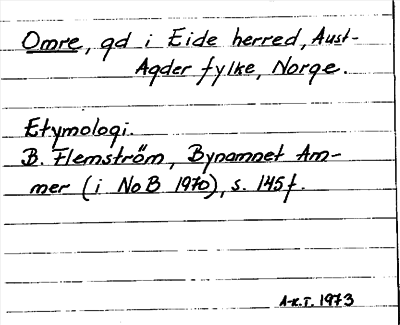 Omre, gd i Eide herred, Aust-
Agder fylke, Norge.
Etymologi.
B. Flemström, Bynamnet Am-
mer (i NoB 1970), s. 145f.
A-K.T. 1973